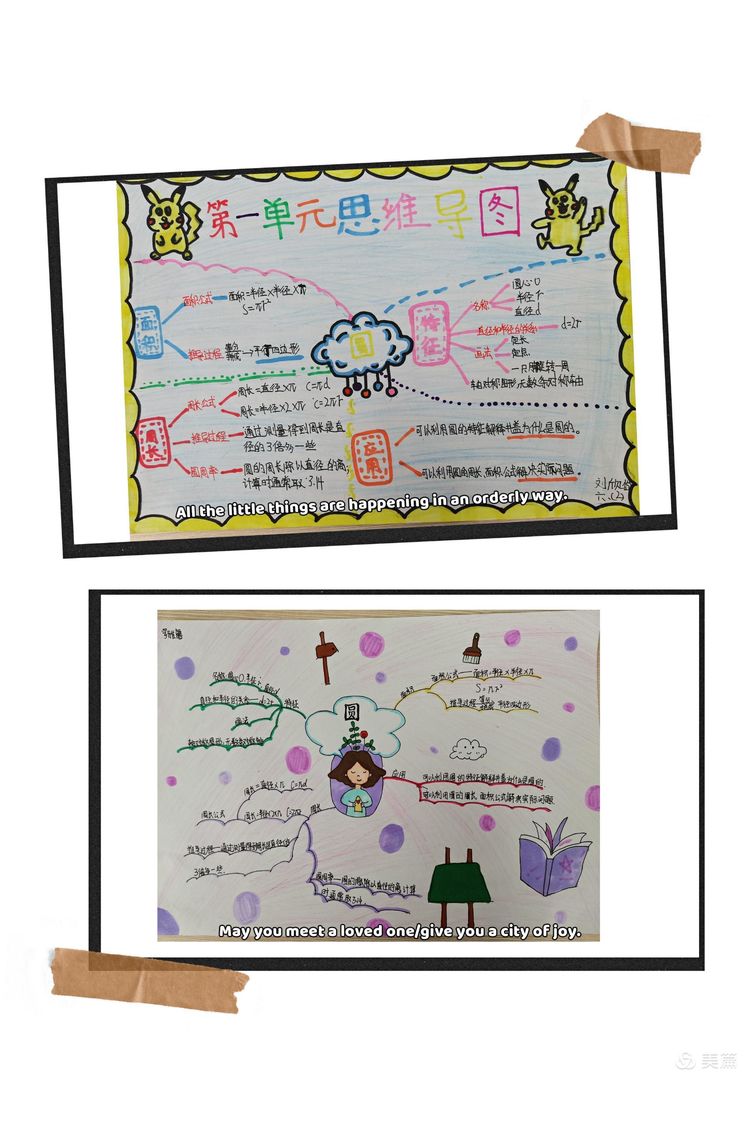 第一单元思维导图
面积
面积公式
面积=半径×半径×π
S=πr²
推导过程
等分
平行四边形
圆
特征
名称
圆心O
半径r
直径d
直径和半径的关系
d=2r
画法
定长
定点
一只脚旋转一周
轴对称图形,无数条对称轴
周长
周长公式
周长=直径×π C=πd
周长=半径×2×π C=2πr
推导过程
通过测量得到周长是直
径的3倍多一些
圆周率
圆的周长除以直径的商,
计算时通常取3.14
应用
可以利用圆的特征解释井盖为什么是圆的。
可以利用圆的周长、面积公式解决实际问题。
六.(2)
All the little things are happening in an orderly way.
圆
特征
画法
面积
面积公式 面积=半径×半径×π
S=πr²
推导过程
应用
可以利用圆的特征解释井盖为什么是圆的
可以利用圆的周长、面积公式解决实际问题
周长
周长公式
周长=直径×π C=πd
3倍多一些.
圆周率 圆的周长除以直径的商,计算
时通常取3.14
May you meet a loved one/give you a city of joy.
美篇